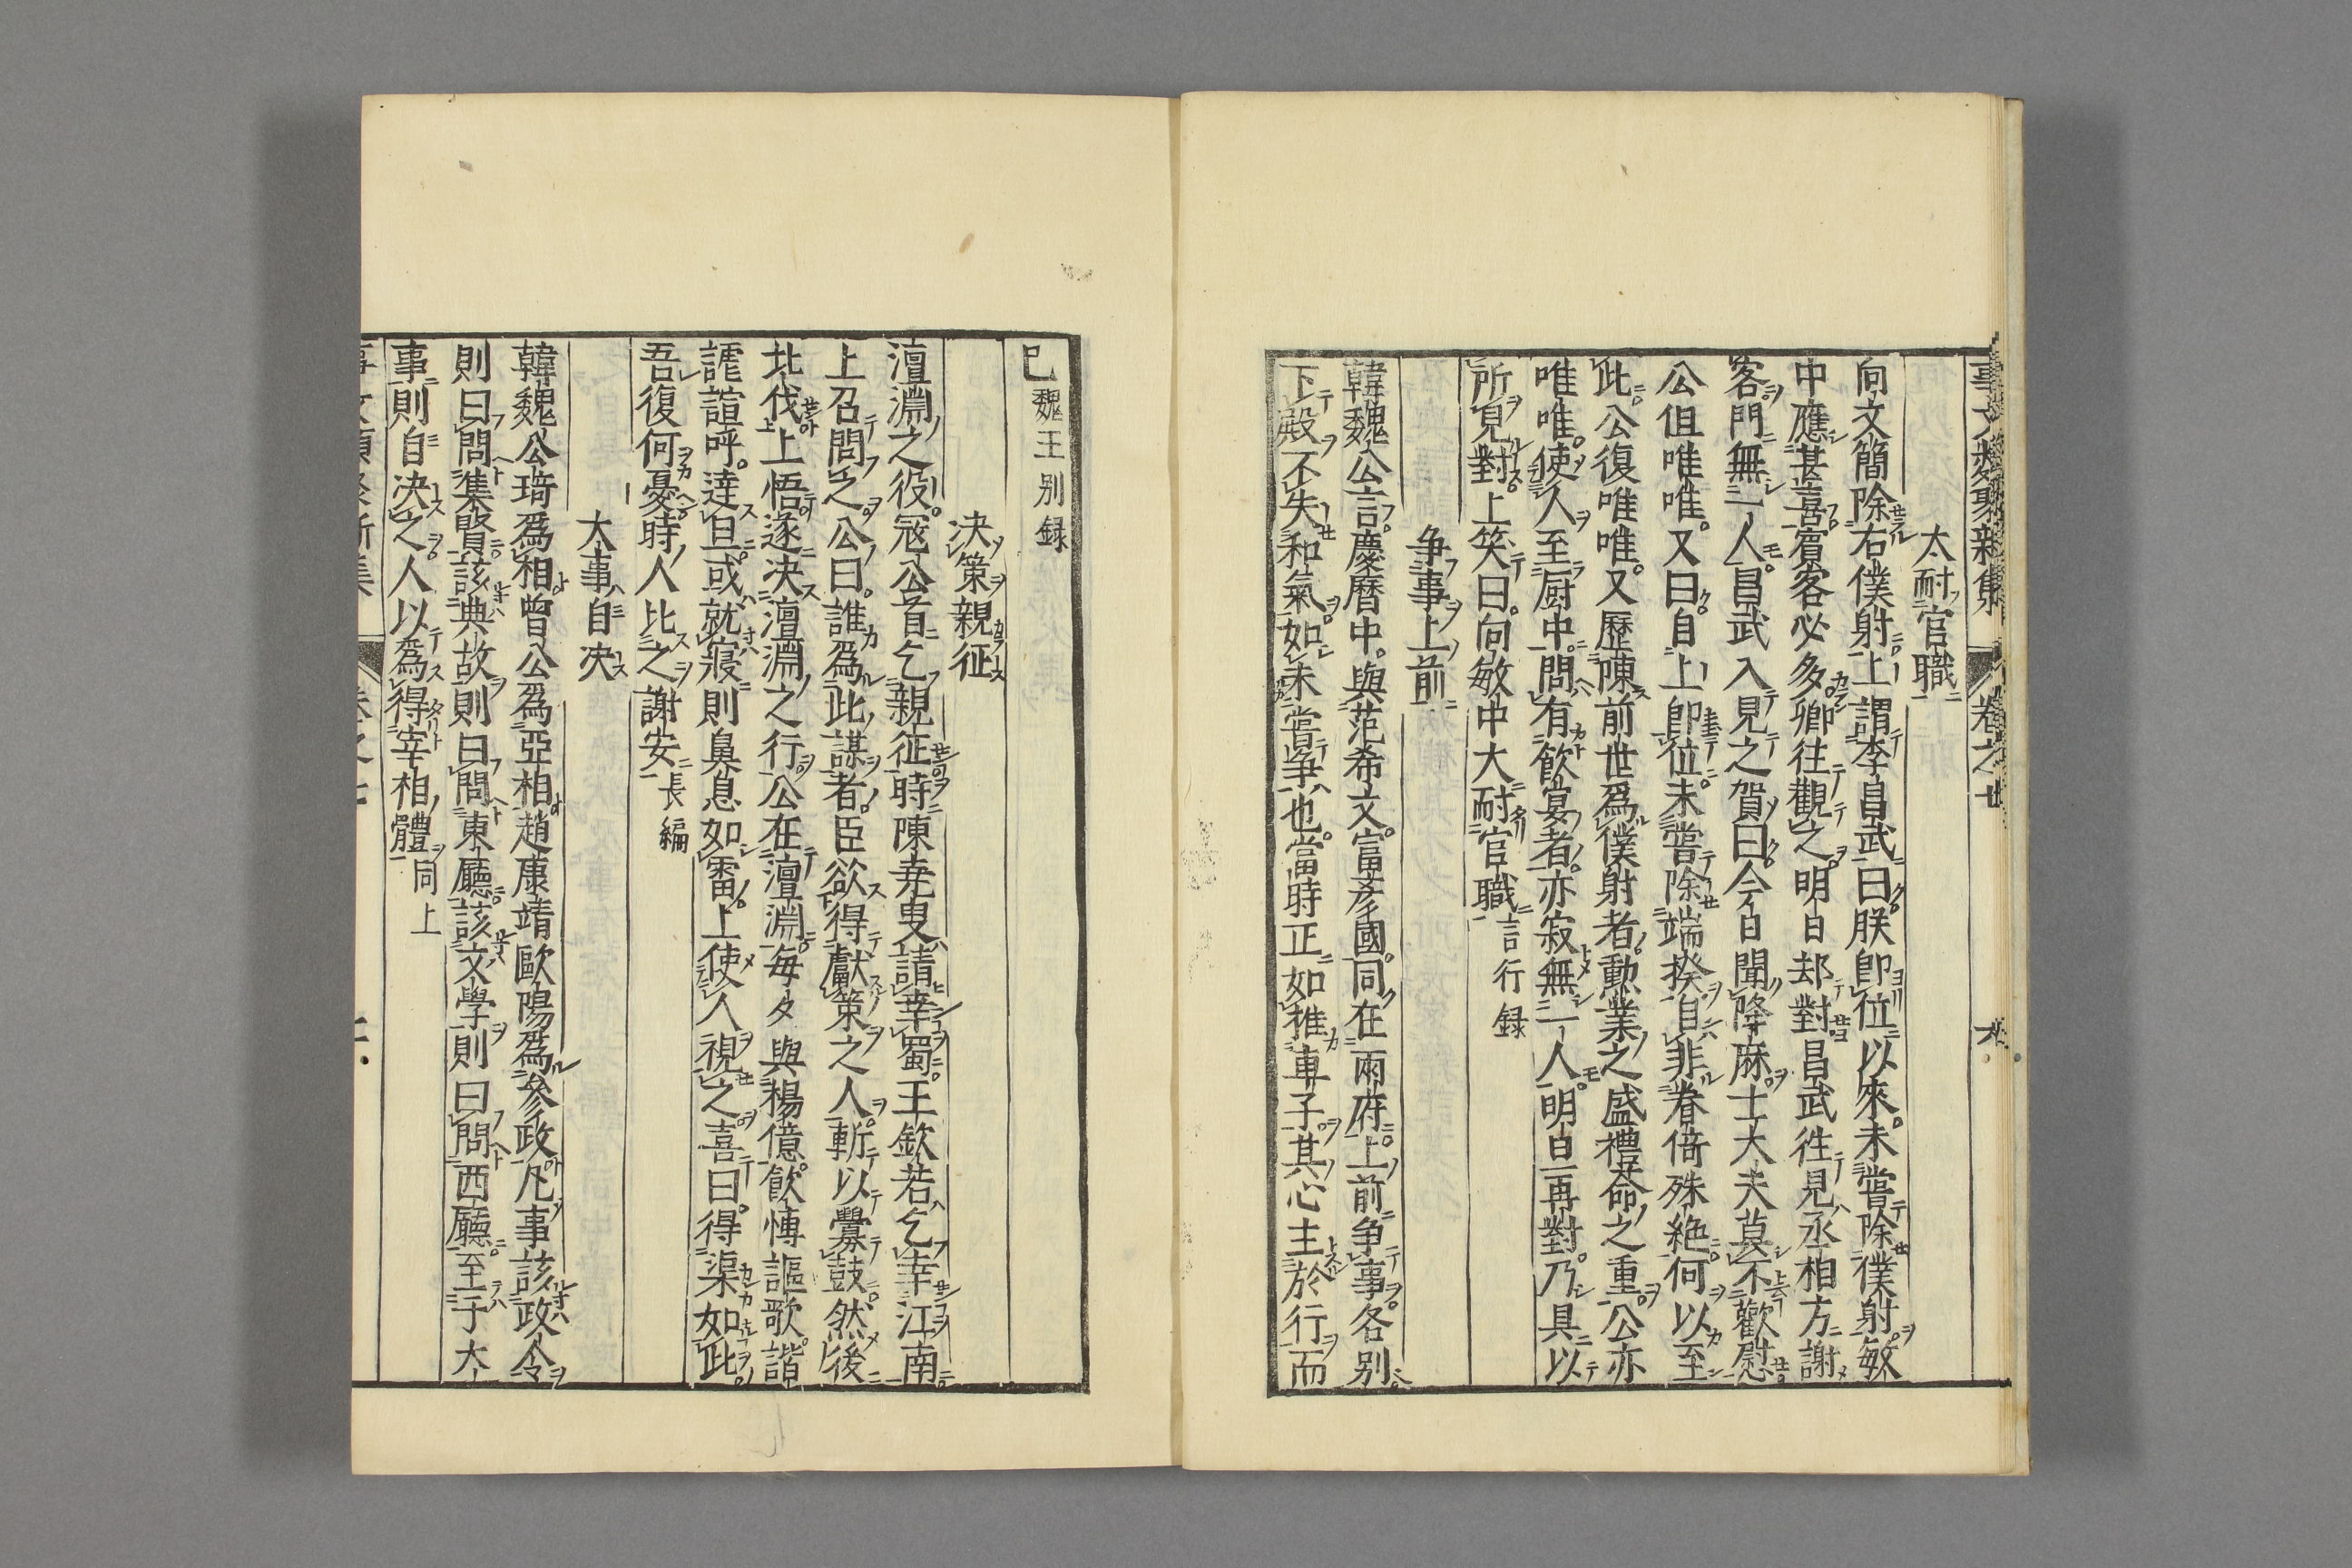 事文類聚新集 卷之廿 六
太耐官職
向文簡除右僕射上謂李昌武曰朕卽位以來未嘗除僕射敏
中應甚喜賓客必多卿往觀之明日却對昌武徃見丞相方謝
客門無一人昌武入見之賀曰今日聞降麻士大夫莫不歡慰
公但唯唯又曰自上卽位未嘗除端揆自非眷倚殊絶何以至
此公復唯唯又歷陳前世爲僕射者勲業之盛禮命之重公亦
唯唯使人至厨中問有飲宴者亦寂無一人明日再對乃具以
所見對上笑曰向敏中大耐官職言行録
争事上前
韓魏公言慶曆中與范希文富彦國同在兩府上前争事各别
下殿不失和氣如未嘗争也當時正如推車子其心主於行而
已魏王别録
决策親征
澶淵之役冦公首乞親征時陳尭叟請幸蜀王欽若乞幸江南
上召問之公曰誰爲此謀者臣欲得獻策之人斬以釁鼓然後
北伐上悟遂决澶淵之行公在澶淵每夕與楊億飲愽謳歌諧
謔諠呼逹旦或就寢則鼻息如雷上使人視之喜曰得渠如此
吾復何憂時人比之謝安長編
大事自决
韓魏公琦爲相曾公爲亞相趙康靖歐陽爲參政凡事該政令
則曰問集賢該典故則曰問東廳該文學則曰問西廳至于大
事則自决之人以爲得宰相體同上